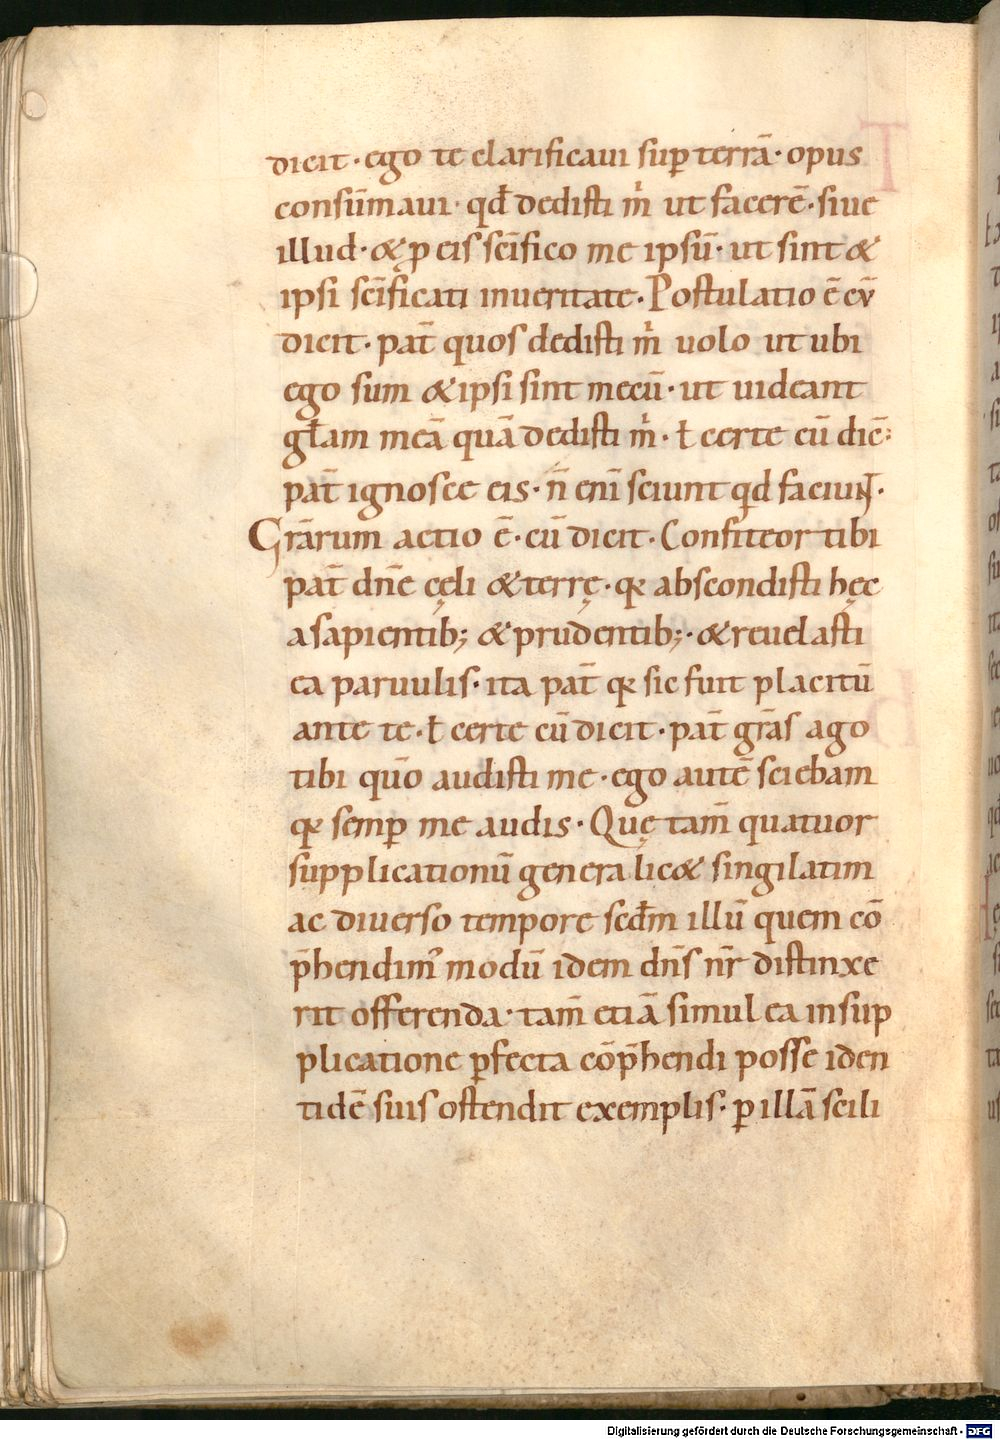 dicit· ego te clarificaui sup̱ terrā· opus
consūmaui· qđ dedisti m̊ ut facerē· siue
illud· & ꝓ eis sc̄ifico me ipsū· ut sint &
ipsi sc̄ificati inueritate· Postulatio ē cū
dicit· pat̄ quos dedisti m̊ uolo ut ubi
ego sum & ipsi sint mecū· ut uideant
głam meā quā dedisti m̊· ł certe cū dic̄·
pat̄ ignosce eis· n̄ eni̅ sciunt qđ faciunt·
Gr̄arum actio ē· cū dicit· Confiteor tibi
pat̄ dn̄e cęli & terrę· qꝛ abscondisti hęc
asapientib; & prudentib;· & reuelasti
ea paruulis· ita pat̄ qꝛ sic fuit placitū
ante te· ł certe cū dicit· pat̄ gr̄as ago
tibi quō audisti me· ego autē sciebam
qꝛ semꝑ me audis· Quę tam̄ quatuor
supplicationū genera lic& singilatim
ac diuerso tempore scđm illū quem cō
p̄hendimꝰ modū idem dn̄s nr̄ distinxe
rit offerenda· tam̄ etiā simul ea insup
plicatione ꝑfecta cōp̄hendi posse iden
tidē suis ostendit exemplis· ꝑ illā scili
Digitalisierung gefördert durch die Deutsche Forschungsgemeinschaft - DFG